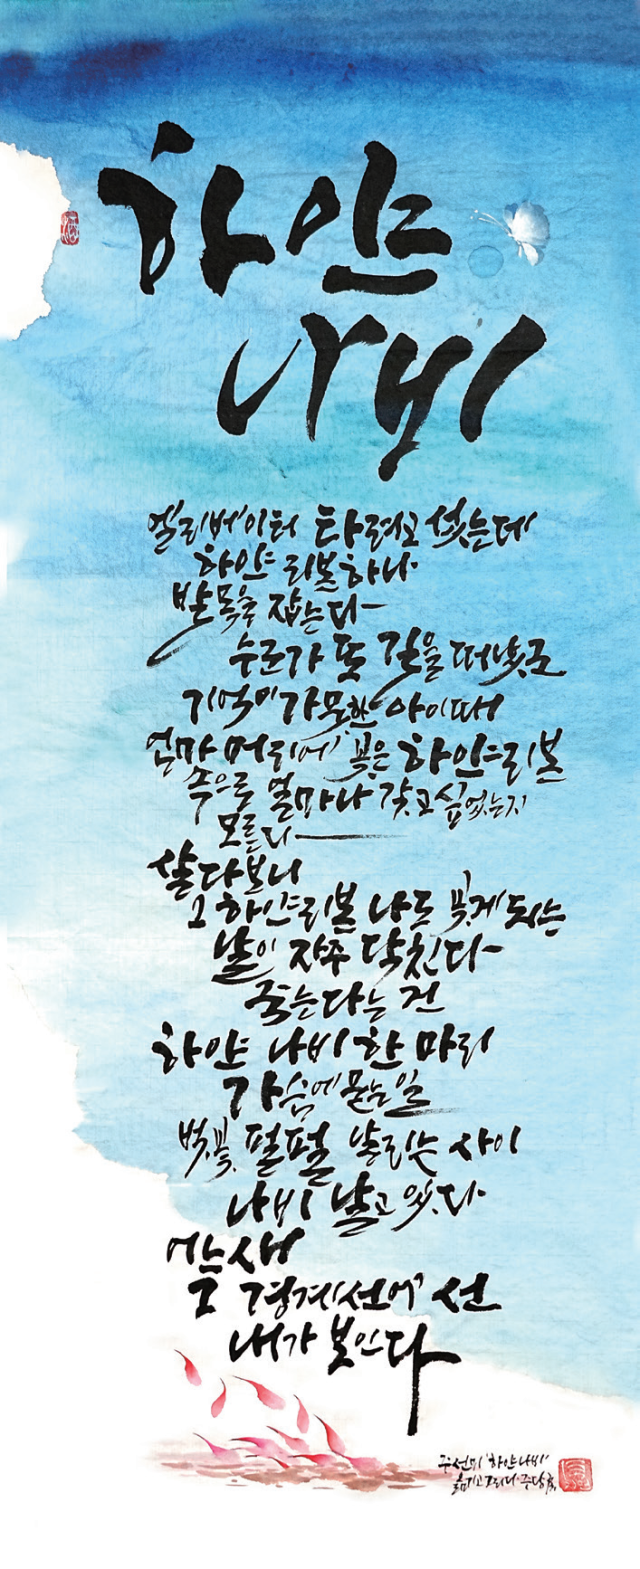 하얀
나비
엘리베이터 타려고 섰는데
하얀 리본 하나
발목을 잡는다
누군가 또 길을 떠났군
기억이 가뭇한 아이 때
엄마 머리에 꽂은 하얀 리본
죽으로 얼마나 갖고 싶었는지
모른다
살다보니
그 하얀 리본 나도 꽂게 되는
날이 자주 닥친다
죽는다는 건
하얀 나비 한 마리
가슴에 묻는 일
벚꽃 펄펄 날리는 사이
나비 날고 있다
어느새
그 경계선에 선
내가 보인다
주선미 '하얀나비'
옮기고 그리다